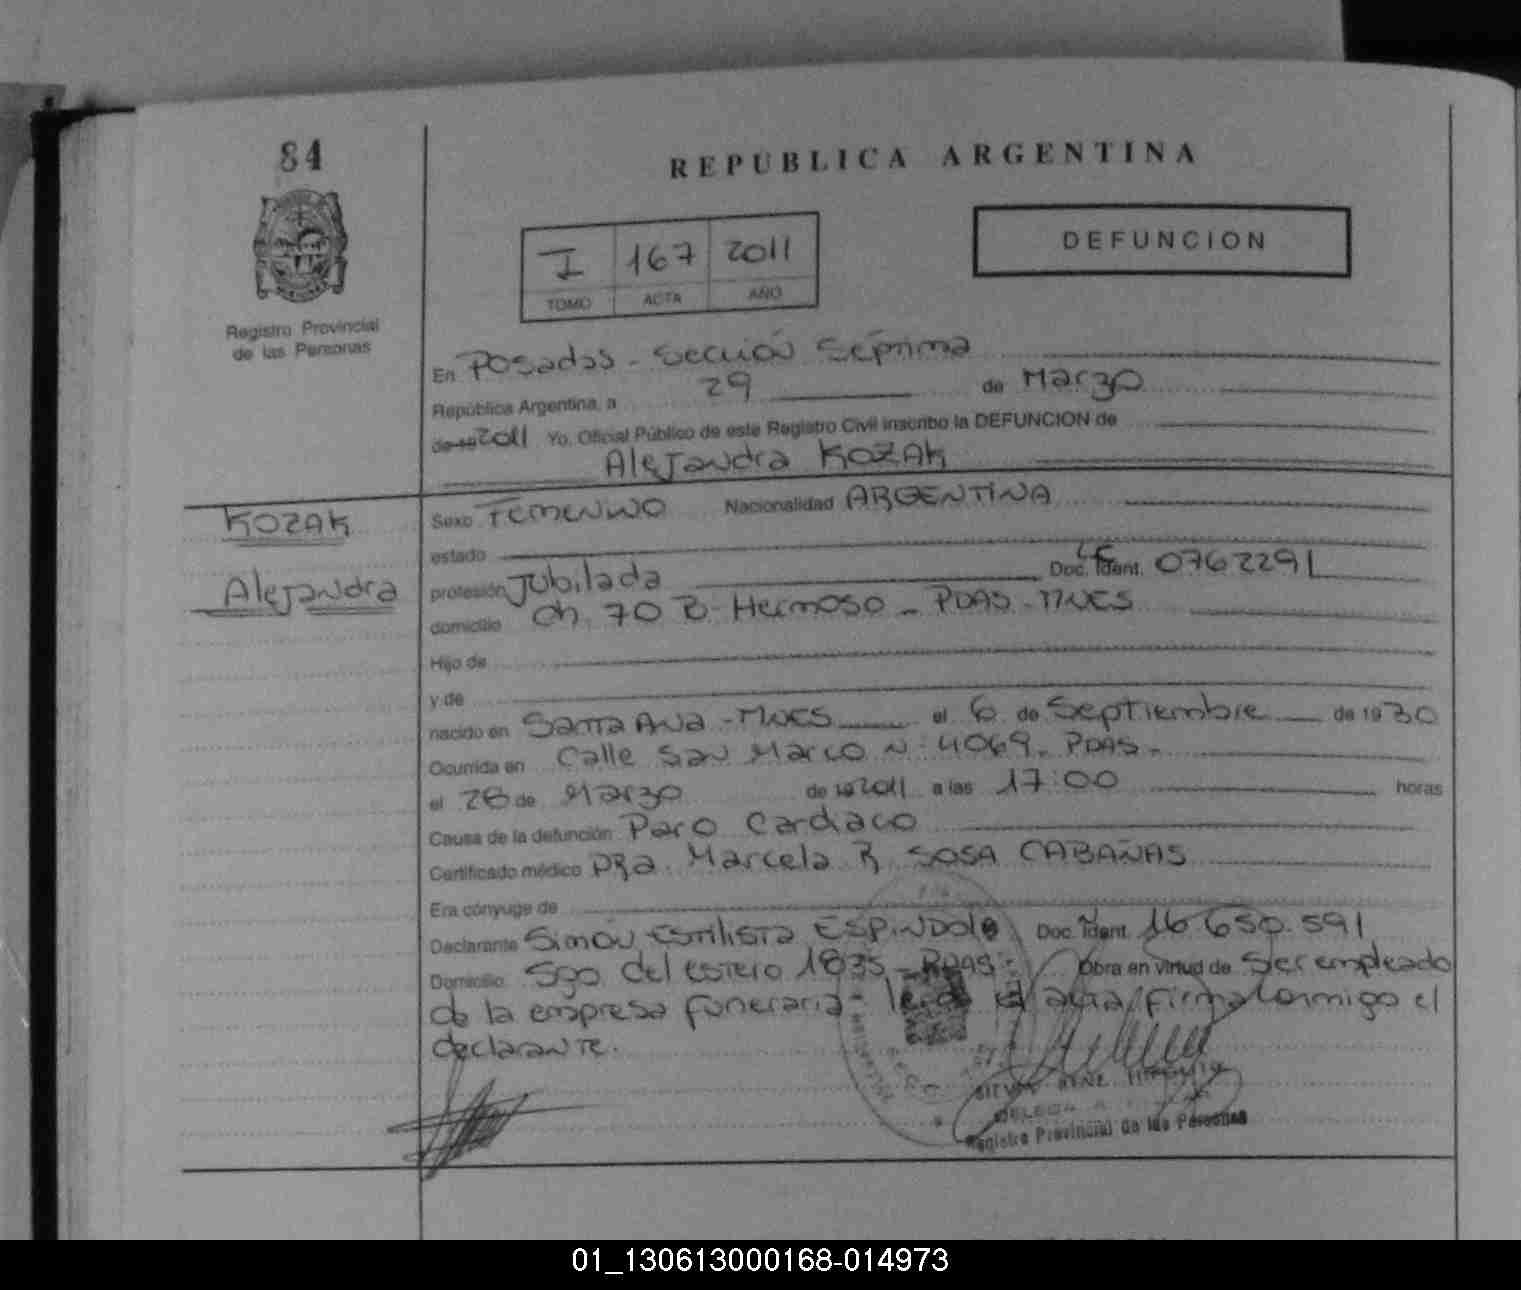 84
REPUBLICA ARGENTINA
DEFUNCION
I 167 2011
TOMO ACTA AÑO
Registro Provincial
de las Personas
En Posadas - Sección Séptima
República Argentina, a 29 de Marzo
de 19 2011 Yo, Oficial Público de este Registro Civil inscribo la DEFUNCION de
Alejandra KOZAK
KOZAK
Alejandra
Sexo FEMENINO Nacionalidad ARGENTINA
estado
profesión Jubilada Doc. Ident. LC 0762291
domicilio Ch. 70 B. Hermoso - PDAS - MNES
Hijo de
y de
nacido en Santa Ana - MNES el 6 de Septiembre de 19 30
Ocurrida en Calle San Marco N: 4069 - PDAS -
el 28 de Marzo de 19 2011 a las 17:00 horas
Causa de la defunción Paro Cardiaco
Certificado médico DRa. Marcela R. SOSA CABAÑAS
Era cónyuge de
Declarante Simón Estilista ESPINDOLA Doc. Ident. 16.650.591
Domicilio Sgo. del estero 1835 - PDAS - Obra en virtud de Ser empleado
de la empresa funeraria - leida el acta firma conmigo el
declarante.
Registro Provincial de las Personas
01_130613000168-014973